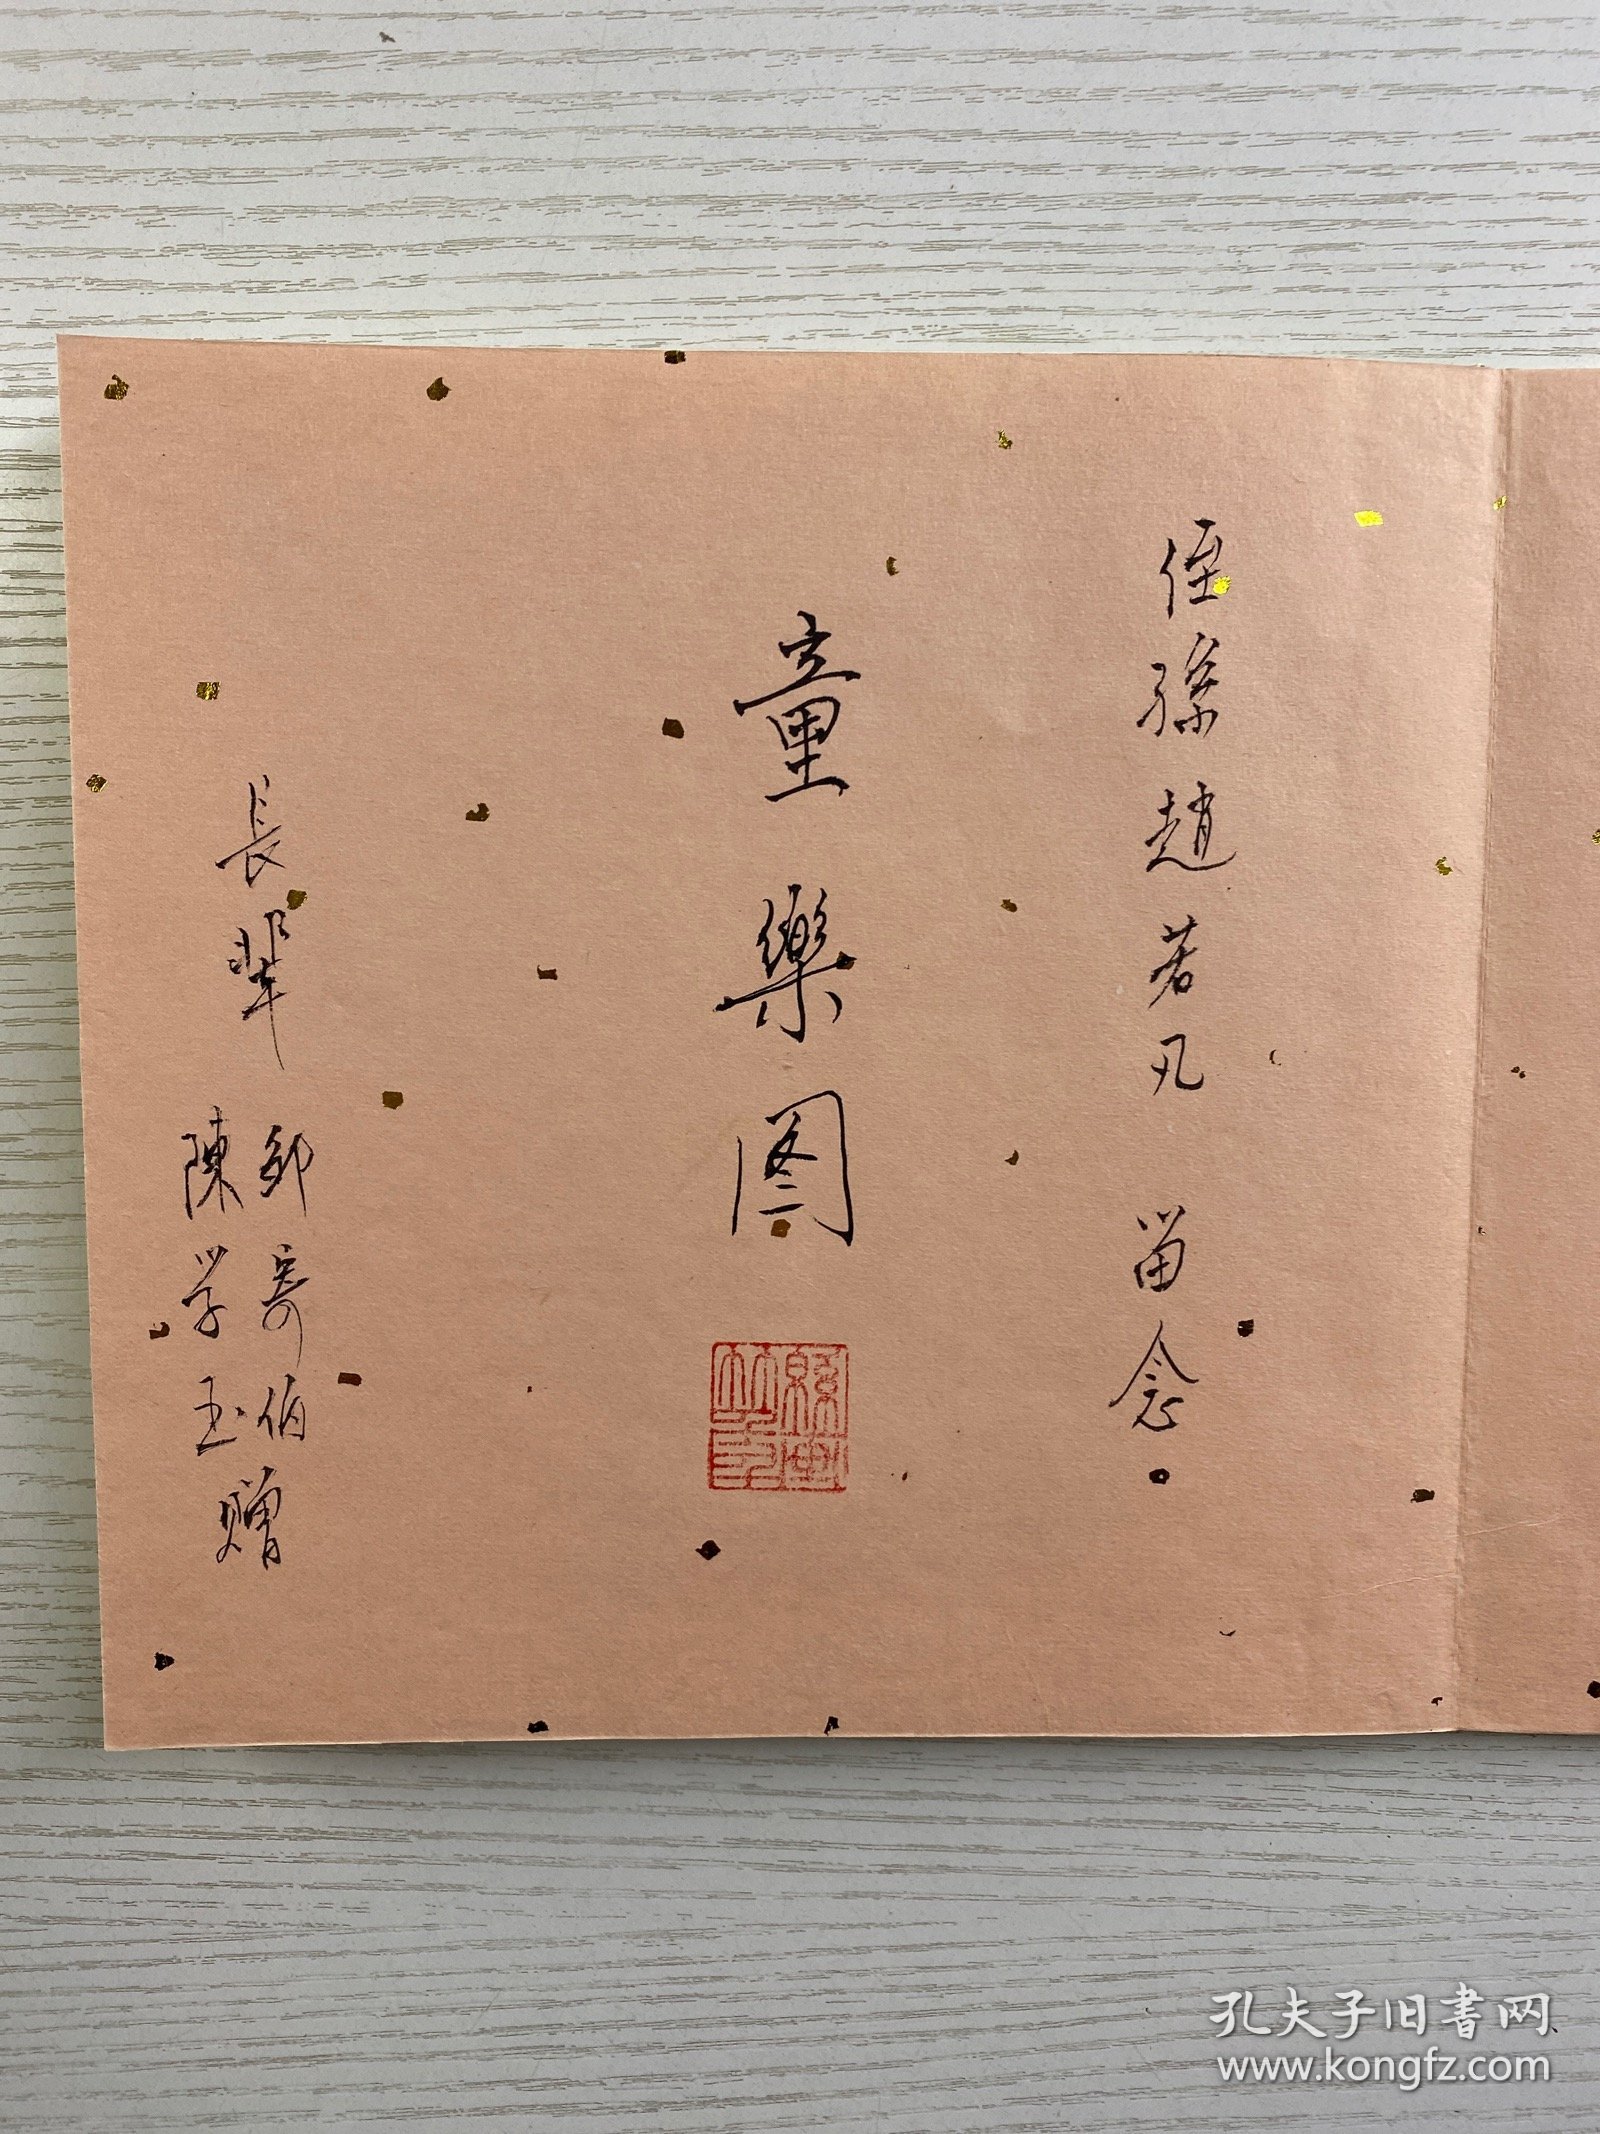 侄孫趙若凡 留念
童樂图
長輩
寄伯
陳学玉
赠
孔夫子旧书网
www.kongfz.com